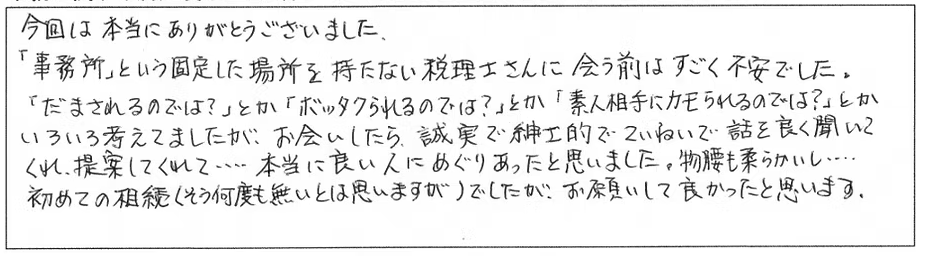 今回は本当にありがとうございました、
「事務所」という固定した場所を持たない税理士さんに会う前はすごく不安でした。
「だまされるのでは?」とか「ボッタクられるのでは?」とか「素人相手にカモられるのでは?」とか
いろいろ考えてましたが、お会いしたら、誠実で紳士的でていねいで話を良く聞いて
くれ、提案してくれて‥‥本当に良い人にめぐりあったと思いました。物腰も柔らかいし‥‥
初めての相続(そう何度も無いとは思いますが)でしたが、お願いして良かったと思います.